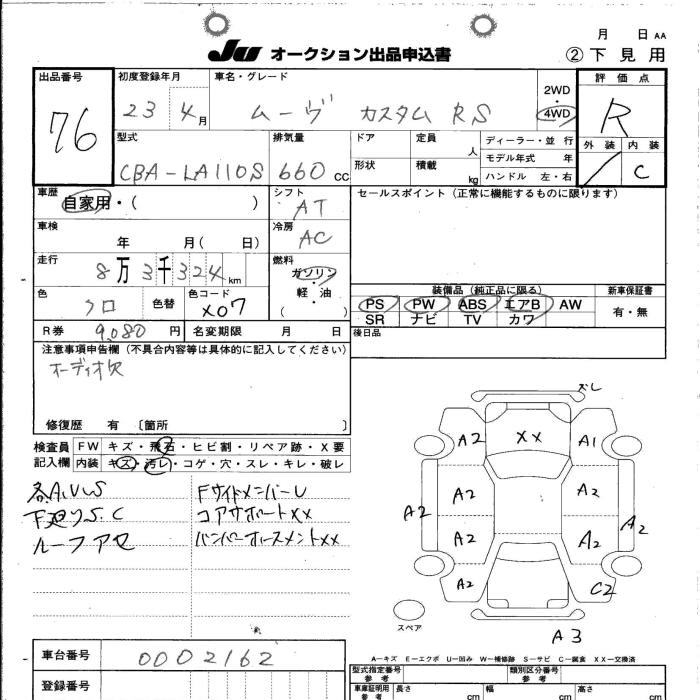 月 日 AA
JU オークション出品申込書 ② 下見用
出品番号 初度登録年月 車名・グレード 評価点
76 23 4月 ムーヴ カスタム RS 2WD 4WD R
型式 排気量 ドア 定員 人 ディーラー・並行 外装 内装
モデル年式 年
CBA-LA110S 660 CC 形状 積載 kg ハンドル 左・右 C
車歴 シフト セールスポイント(正常に機能するものに限ります)
自家用・( ) AT
車検 冷房
年 月( 日) AC
走行 燃料
8万3千324km ガソリン
軽・油
( ・ )
装備品(純正品に限る) 新車保証書
色 クロ 色替 色コード X07
PS PW ABS エアB AW 有・無
SR ナビ TV カワ
R券 9,080円 名変期限 月 日 後日品
注意事項申告欄(不具合内容等は具体的に記入してください)
オーディオ欠
修復歴 有 〔箇所 〕
検査員 FW キズ・飛石・ヒビ割・リペア跡・X要
記入欄 内装 キズ・汚レ・コゲ・穴・スレ・キレ・破レ
各A.U.W.S FサイドメンバーU
下廻りS.C コアサポートXX
ルーフアセ バンパーホースメントXX
ズレ
A2 XX A1
A2 A2
A2 A2
A2 A2
A2 C2
スペア
A3
A-キズ E-エクボ U-凹み W-補修跡 S-サビ C-腐食 XX-交換済
車台番号 0002162
型式指定番号 参考 類別区分番号 参考
登録番号 車庫証明用 参考 長さ cm 幅 cm 高さ cm